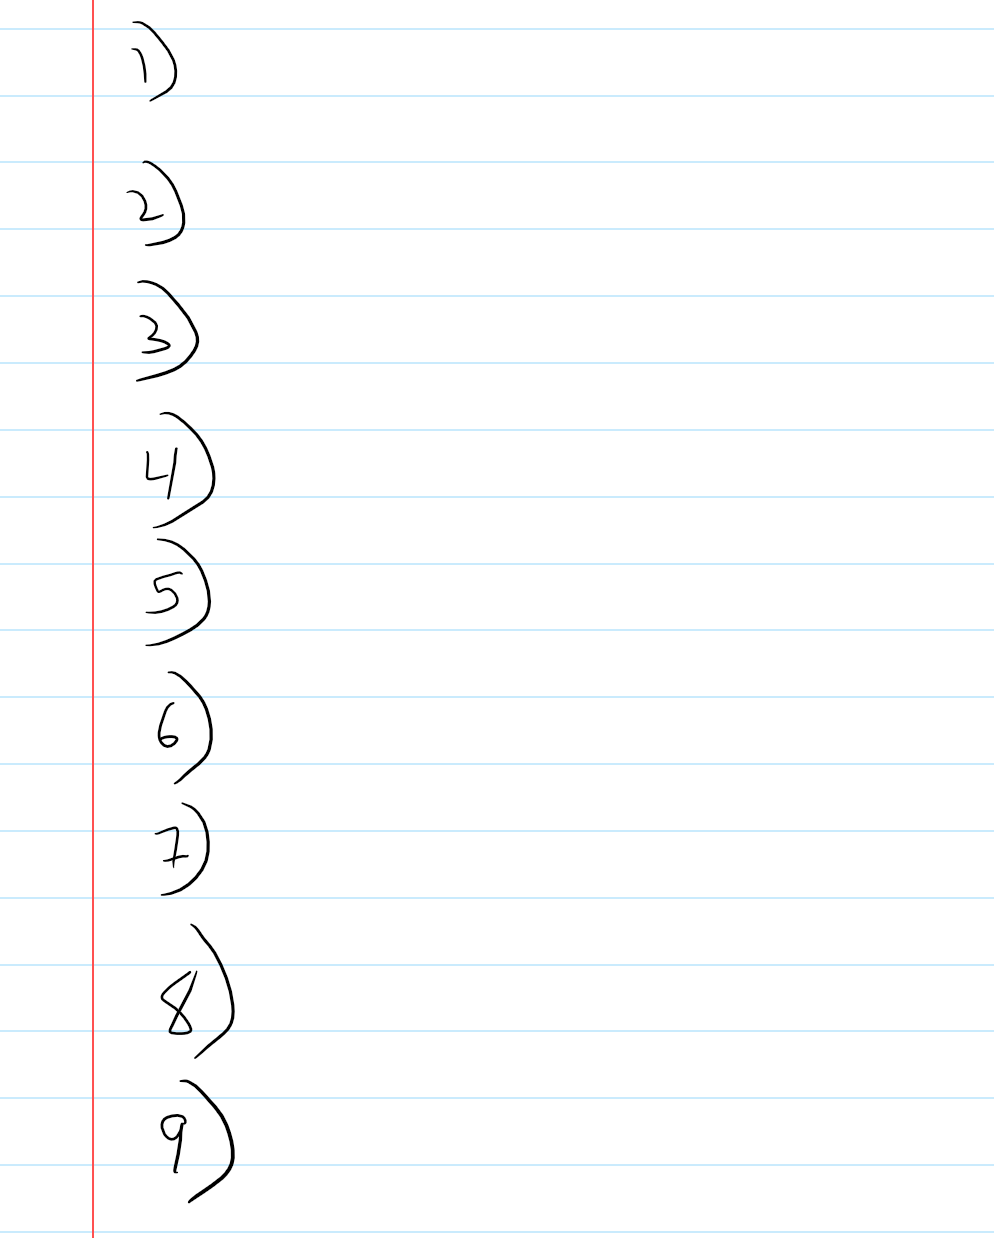 1)
2)
3)
4)
5)
6)
7)
8)
9)